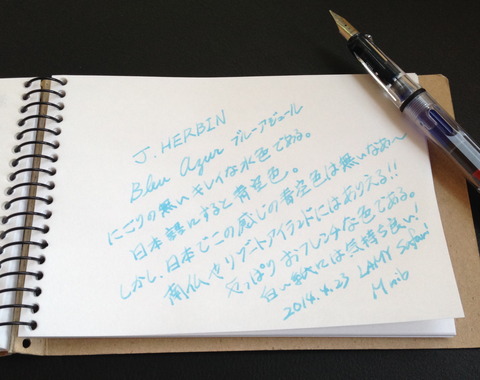 J. HERBIN
Bleu Azur ブルーアジュール
にごりの無いキレイな水色である。
日本語にすると青空色。
しかし、日本でこの感じの青空色は無いなあ〜
南仏やリゾートアイランドにはありえる!!
やっぱりおフレンチな色である。
白い紙には気持ち良い!
2014.4.23 LAMY Safari
M nib